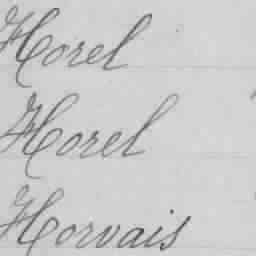 Horel
Horel
Horvais